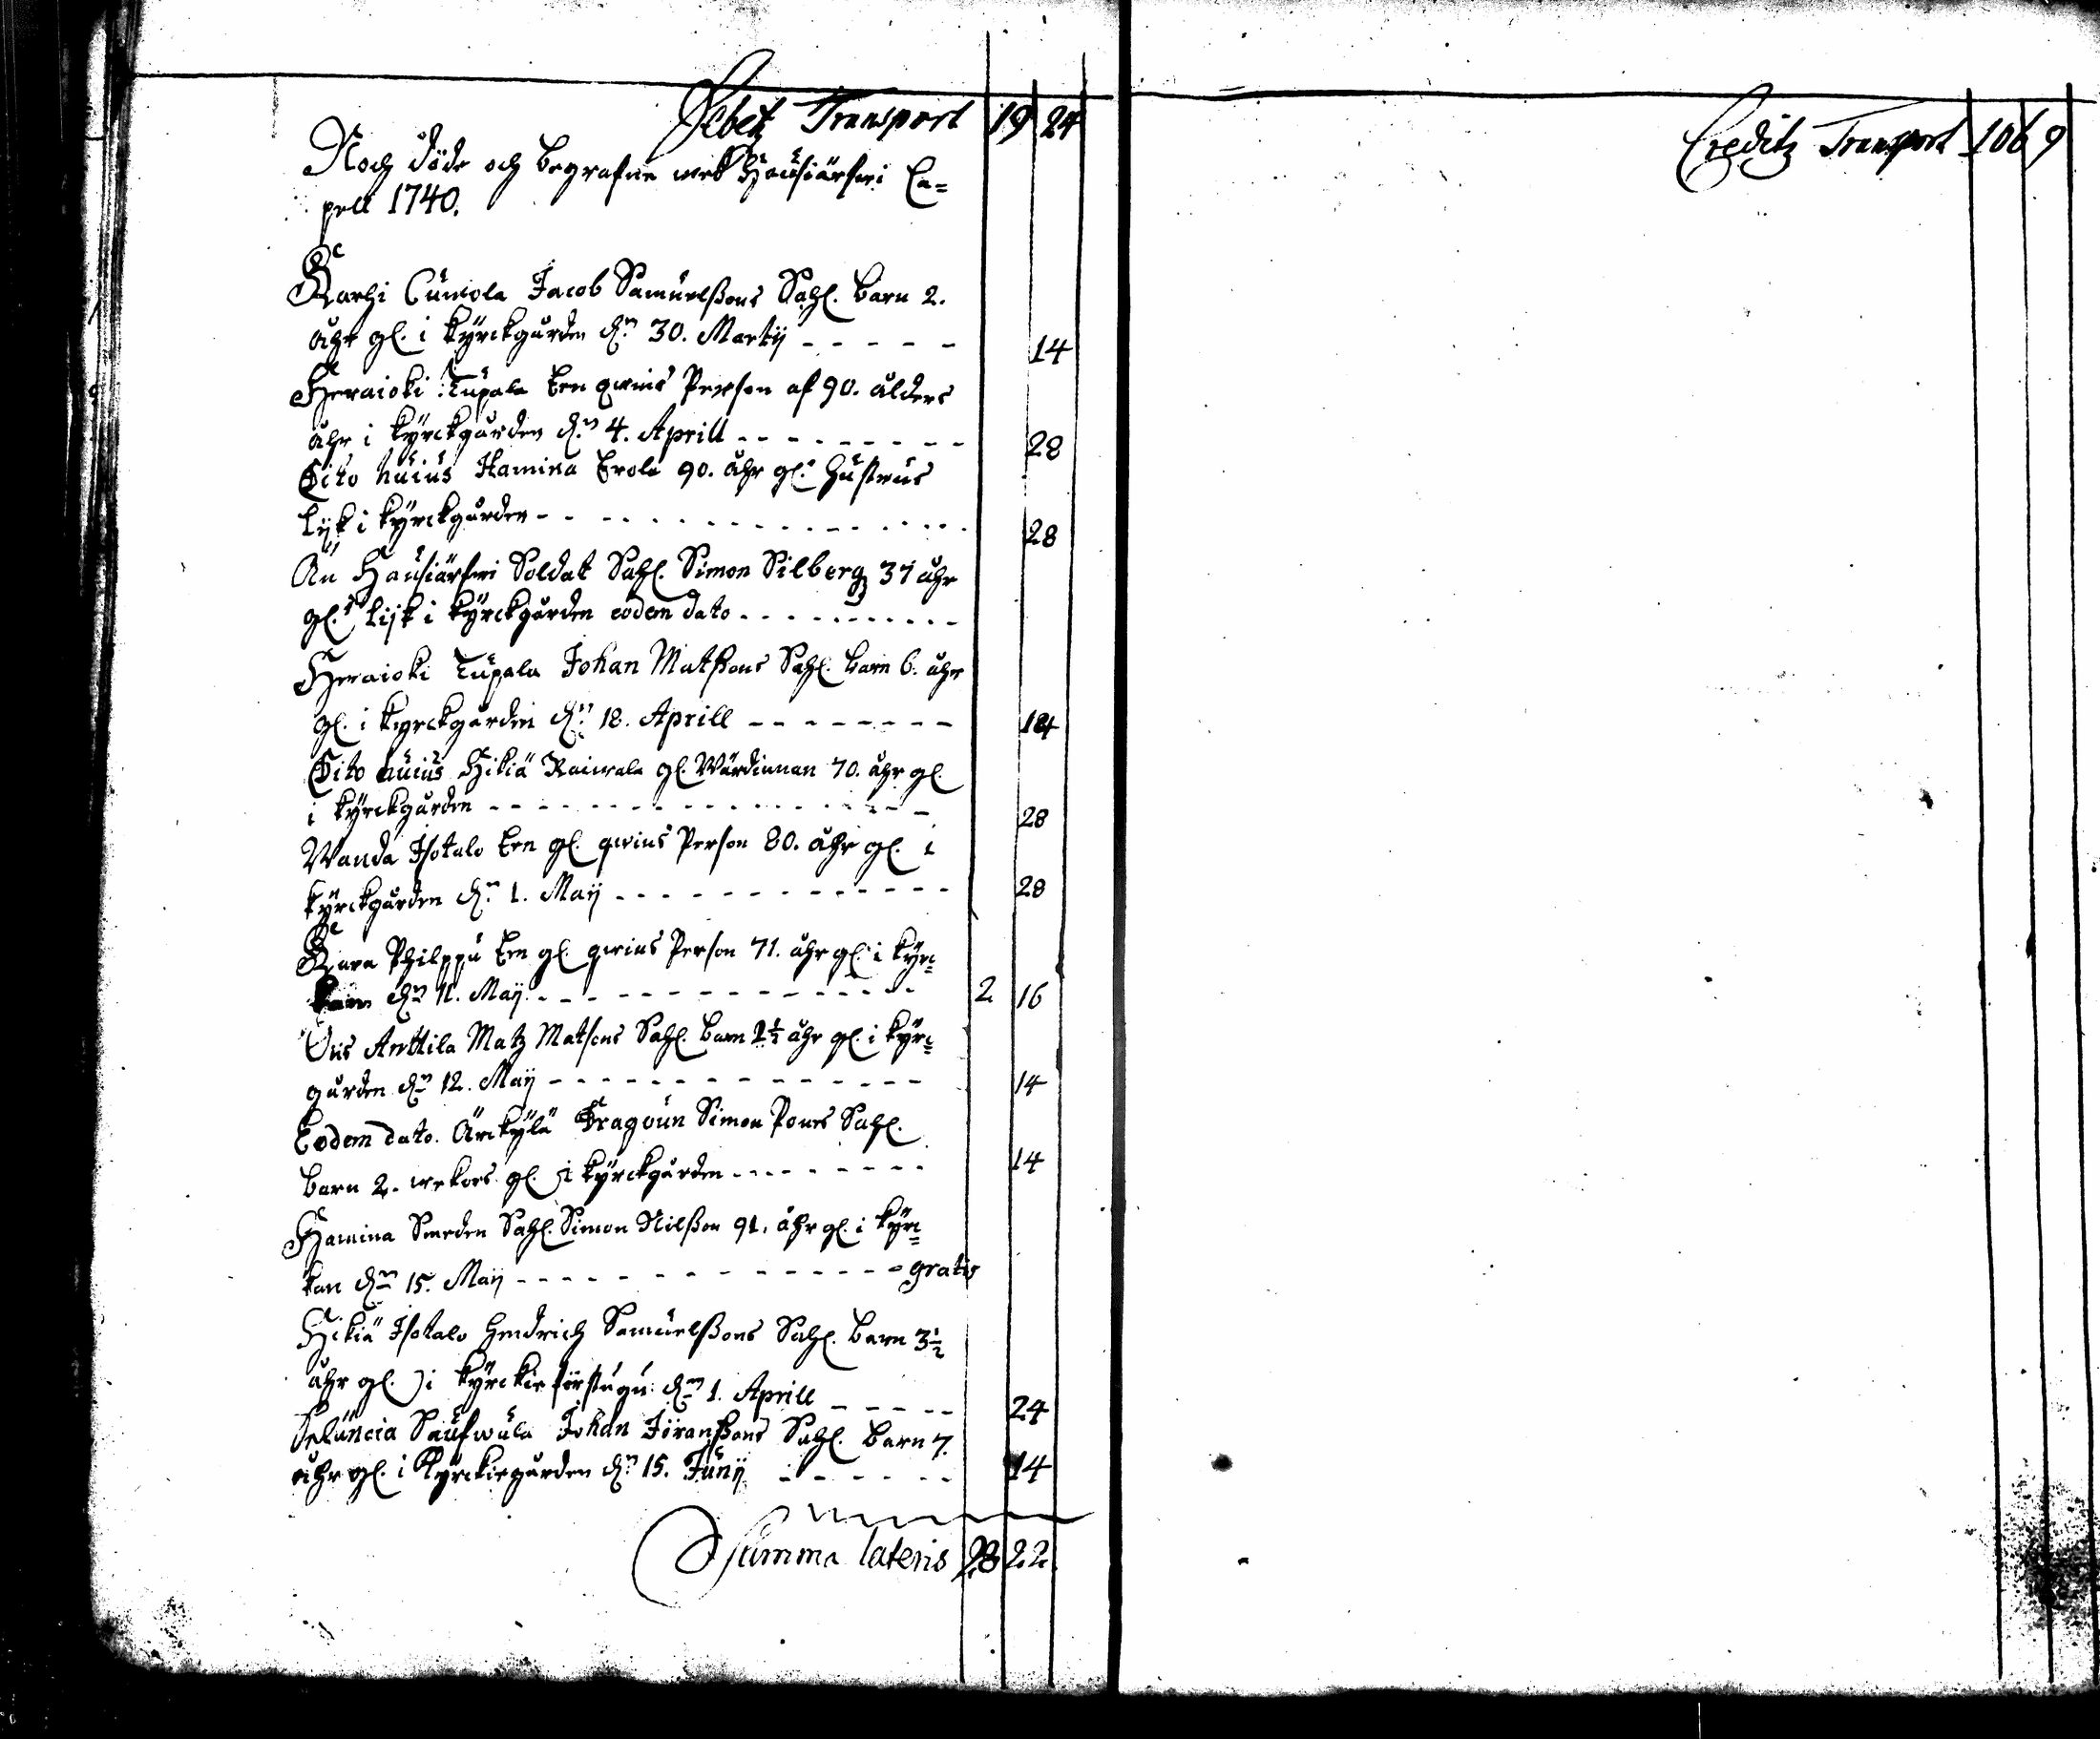 Debetz Transport 19 24
Noch döde och begrafne wed Hausiärfwi Ca=
pell 1740.
Karhi Cumola Jacob Samuelßons Sahl. barn 2.
åhr gl. i kyrckgården d.n 30. Martij - - - - - 14
Heraioki Tupala Een qwins Person af 90. ålders
åhr i kyrckgården d.n 4. Aprill - - - - - - - - - 28
Dito huius Hamina Erola 90. åhr gl. hustrus
Lijk i kyrckgården - - - - - - - - - - - - - - - 28
Än Hausiärfwi Soldat Sahl. Simon Silberg 37 åhr
gl.s Lijk i kyrckgården eodem dato - - - - - - - - - -
Heraioki Tupala Johan Matßons Sahl. barn 6. åhr
gl. i kyrckgården d.n 18. Aprill - - - - - - - - 14
Dito huius Hikiä Raiwala gl. Wärdinnan 70. åhr gl.
i kyrckgården - - - - - - - - - - - - - - 28
Wanda Isotalo Een gl. qwins Person 80. åhr gl. i
kyrckgården d.n 1. Maij - - - - - - - - - - - - - 28
Kara Philppu Een gl. qwins Person 71. åhr gl. i kyrc=
kan d.n 11. Maij - - - - - - - - - - - - - - 2 16
Ois Anttila Matz Matsons Sahl. barn 1½ åhr gl. i kyrc=
gården d.n 12. Maij - - - - - - - - - - - - - - 14
Eodem dato. Ärckylä Dragoun Simon Pours Sahl.
barn 2. wekors gl. i kyrckgården - - - - - - - - 14
Hamina Smeden Sahl. Simon Nilßon 91. åhr gl. i kyrc=
kan d.n 15. Maij - - - - - - - - - - - - gratis
Hikiä Isotalo Hendrich Samuelßons Sahl. barn 3½
åhr gl. i kyrckieförstugu d.n 1. Aprill - - - - - 24
Saufwala Johan Jöranßons Sahl. barn 7.
åhr gl. i Kyrckiegården d.n 15. Junij - - - - - - 14
Summa lateris 28 22.
Creditz Transport 106 9